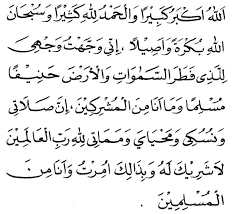 اَللهُ اَكْبَرُ كَبِيْرًا وَالْحَمْدُ لِلّٰهِ كَثِيْرًا وَسُبْحَانَ
اللهِ بُكْرَةً وَاَصِيْلًا ، اِنِّي وَجَّهْتُ وَجْهِيَ
لِلَّذِى فَطَرَ السَّمٰوَاتِ وَالْاَرْضَ حَنِيْفًا
مُسْلِمًا وَمَا اَنَا مِنَ الْمُشْرِكِيْنَ ، اِنَّ صَلَاتِى
وَنُسُكِى وَمَحْيَاىَ وَمَمَاتِى لِلّٰهِ رَبِّ الْعَالَمِيْنَ
لَا شَرِيْكَ لَهُ وَبِذَالِكَ اُمِرْتُ وَاَنَا مِنَ
الْمُسْلِمِيْنَ .